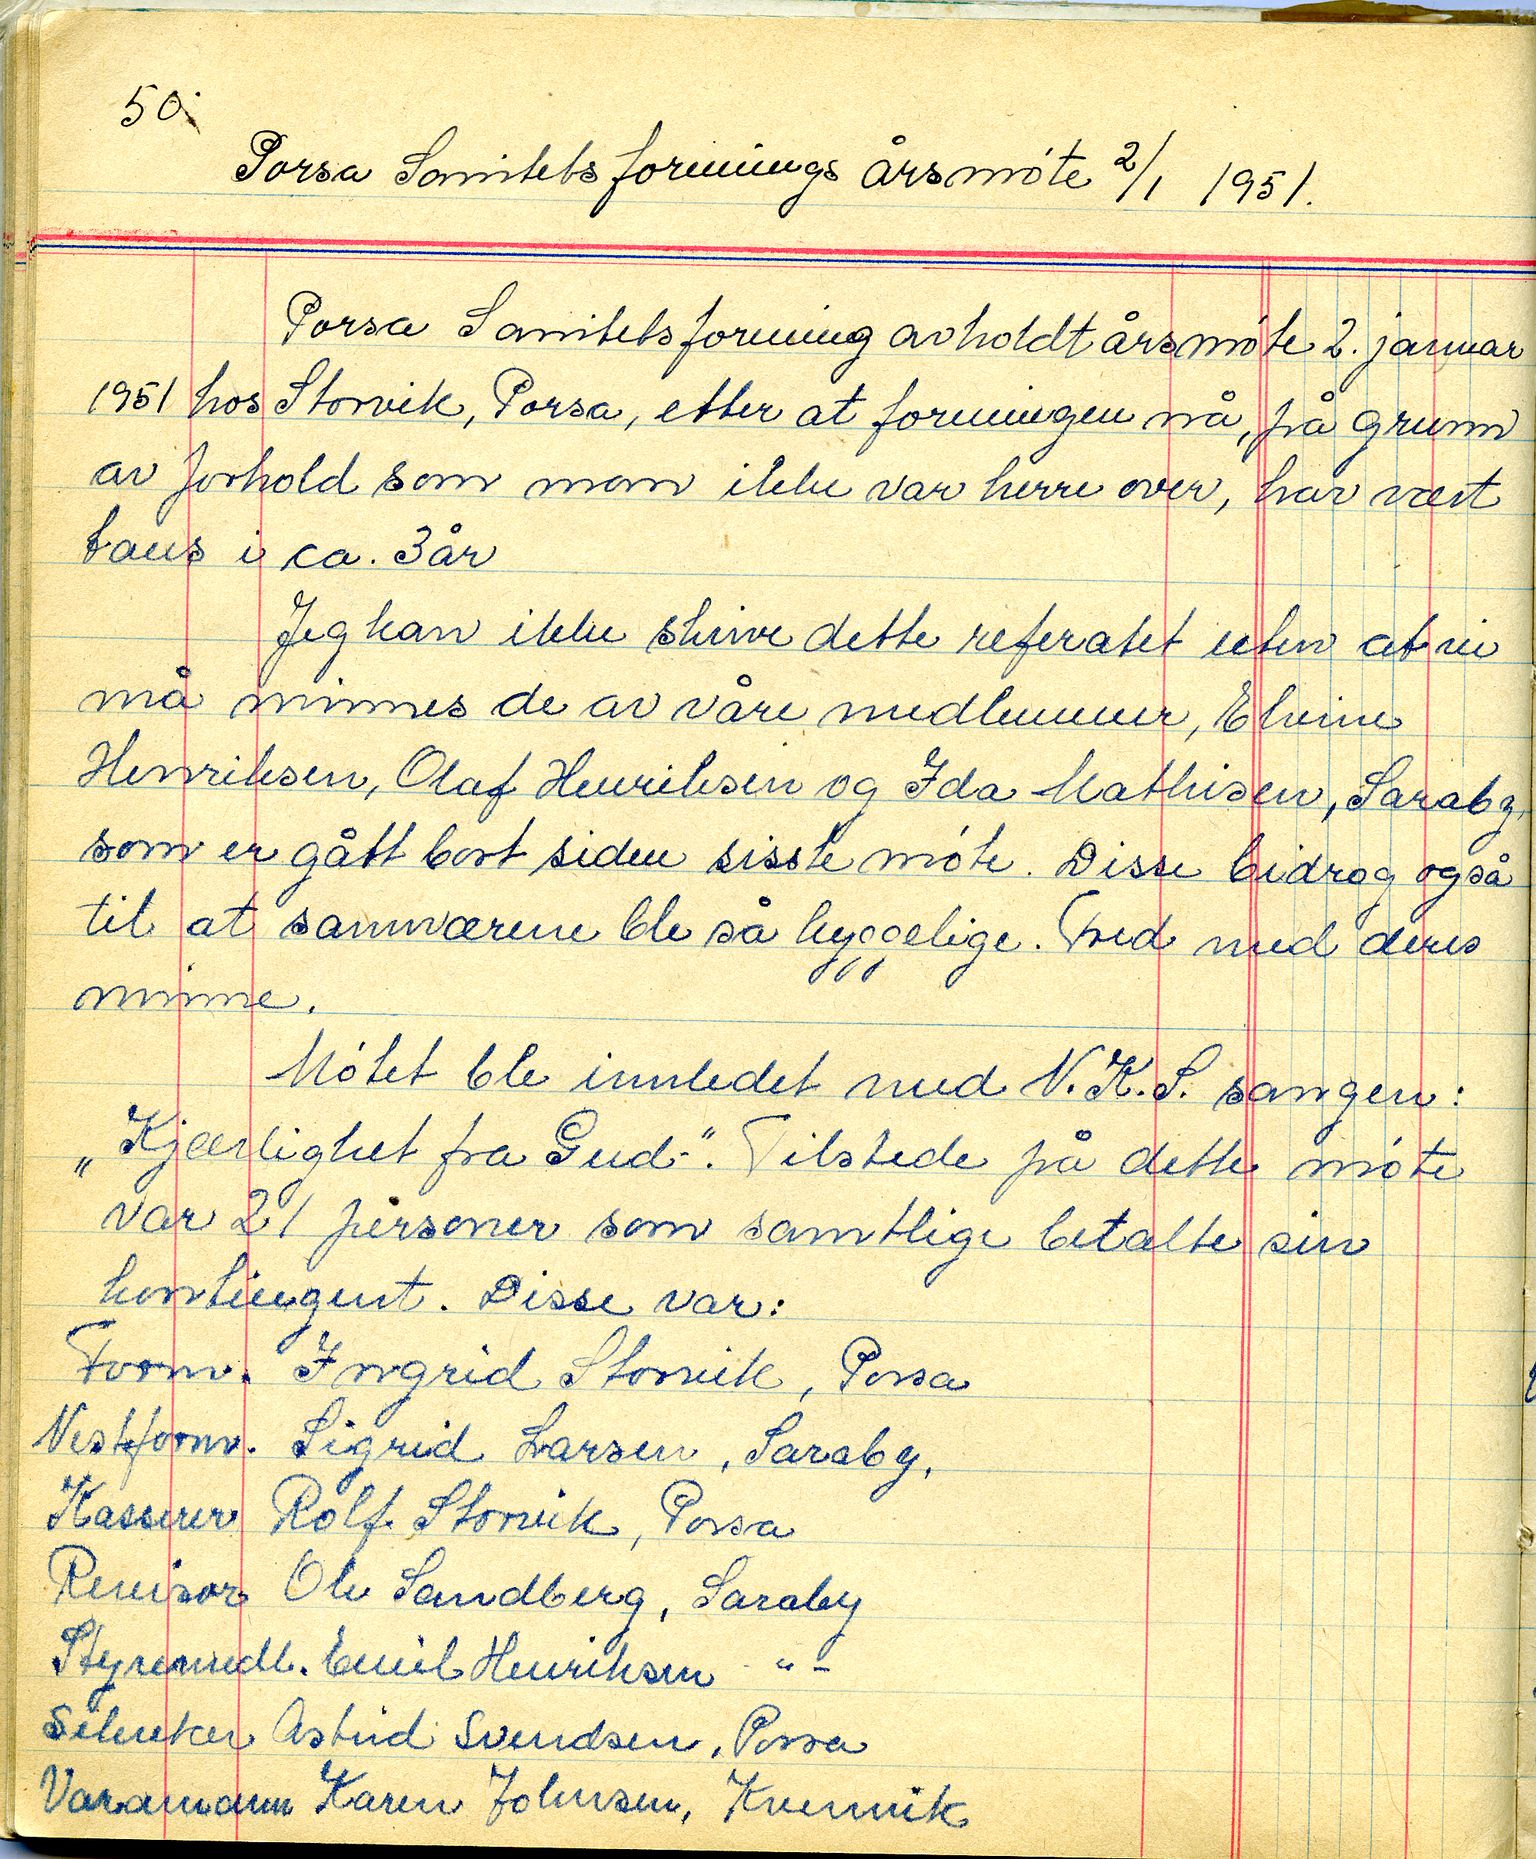 50.
Porsa Sanitetsforenings årsmøte 2/1 1951.
Porsa Sanitetsforening avholdt årsmøte 2. januar
1951 hos Storvik, Porsa, etter at foreningen nå, på grunn
av forhold som man ikke var herre over, har vært
taus i ca. 3 år
Jeg kan ikke skrive dette referatet uten at vi
må minnes de av våre medlemmer, Elvine
Henriksen, Olaf Henriksen og Ida Mathisen, Saraby,
som er gått bort siden sisste møte. Disse bidrog også
til at samværene ble så hyggelige. Fred med deres
minne.
Møtet ble innledet med N.K.S. sangen:
„Kjærlighet fra Gud-". Tilstede på dette møte
var 21 personer som samtlige betalte sin
kontingent. Disse var:
Form. Ingrid Storvik, Porsa
Nestform. Sigrid Larsen, Saraby,
Kasserer Rolf Storvik, Porsa
Revisor Ole Sandberg, Saraby
Styremedl. Emil Henriksen -"-
Sekretær Astrid Svendsen, Porsa
Varamann Karen Johnsen, Kvenvik